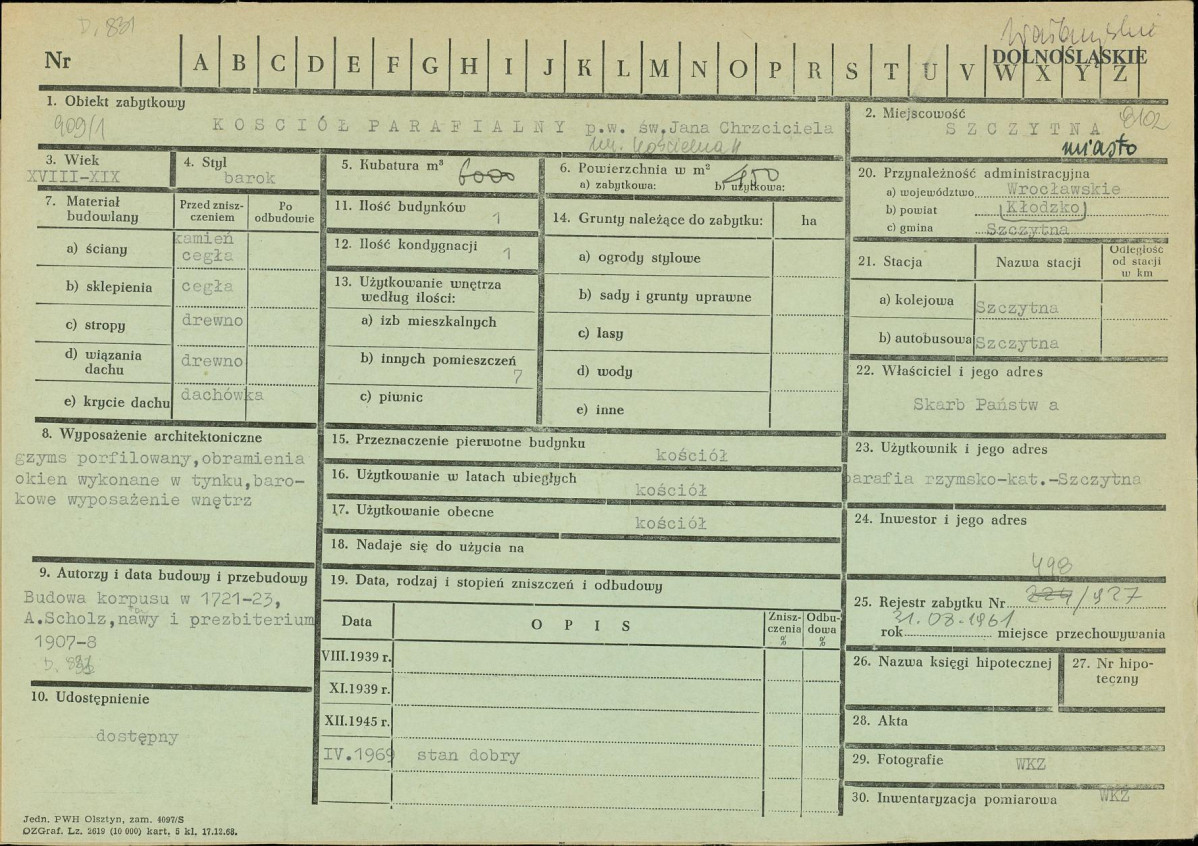 D. 831
Wałbrzyskie
DOLNOŚLĄSKIE
Nr A B C D E F G H I J K L M N O P R S T U V W X Y Z
1. Obiekt zabytkowy
909/1
KOSCIÓŁ PARAFIALNY p.w. św.Jana Chrzciciela
ul. Kościelna 4
2. Miejscowość
8102
SZCZYTNA
miasto
3. Wiek
XVIII-XIX
4. Styl
barok
5. Kubatura m³ 6000
6. Powierzchnia w m² 450
a) zabytkowa: b) użytkowa:
7. Materiał budowlany
Przed znisz-
czeniem
Po
odbudowie
a) ściany kamień
cegła
b) sklepienia cegła
c) stropy drewno
d) wiązania
dachu drewno
e) krycie dachu dachówka
11. Ilość budynków 1
12. Ilość kondygnacji 1
13. Użytkowanie wnętrza
według ilości:
a) izb mieszkalnych
b) innych pomieszczeń 7
c) piwnic
14. Grunty należące do zabytku: ha
a) ogrody stylowe
b) sady i grunty uprawne
c) lasy
d) wody
e) inne
20. Przynależność administracyjna
a) województwo Wrocławskie
b) powiat Kłodzko
c) gmina Szczytna
21. Stacja Nazwa stacji Odległość
od stacji
w km
a) kolejowa Szczytna
b) autobusowa Szczytna
22. Właściciel i jego adres
Skarb Państw a
8. Wyposażenie architektoniczne
gzyms porfilowany,obramienia
okien wykonane w tynku,baro-
kowe wyposażenie wnętrz
15. Przeznaczenie pierwotne budynku
kościół
16. Użytkowanie w latach ubiegłych
kościół
17. Użytkowanie obecne
kościół
18. Nadaje się do użycia na
23. Użytkownik i jego adres
parafia rzymsko-kat.-Szczytna
24. Inwestor i jego adres
9. Autorzy i data budowy i przebudowy
Budowa korpusu w 1721-23,
A.Scholz,nawy i prezbiterium
1907-8
10. Udostępnienie
dostępny
19. Data, rodzaj i stopień zniszczeń i odbudowy
Data OPIS Znisz-
czenia
% Odbu-
dowa
%
VIII.1939 r.
XI.1939 r.
XII.1945 r.
IV.1969 stan dobry
498
25. Rejestr zabytku Nr /927
31.08.1961
rok miejsce przechowywania
26. Nazwa księgi hipotecznej
27. Nr hipo-
teczny
28. Akta
29. Fotografie WKZ
30. Inwentaryzacja pomiarowa WKZ
Jedn. PWH Olsztyn, zam. 4097/S
OZGraf. Lz. 2619 (10 000) kart. 5 kl. 17.12.68.